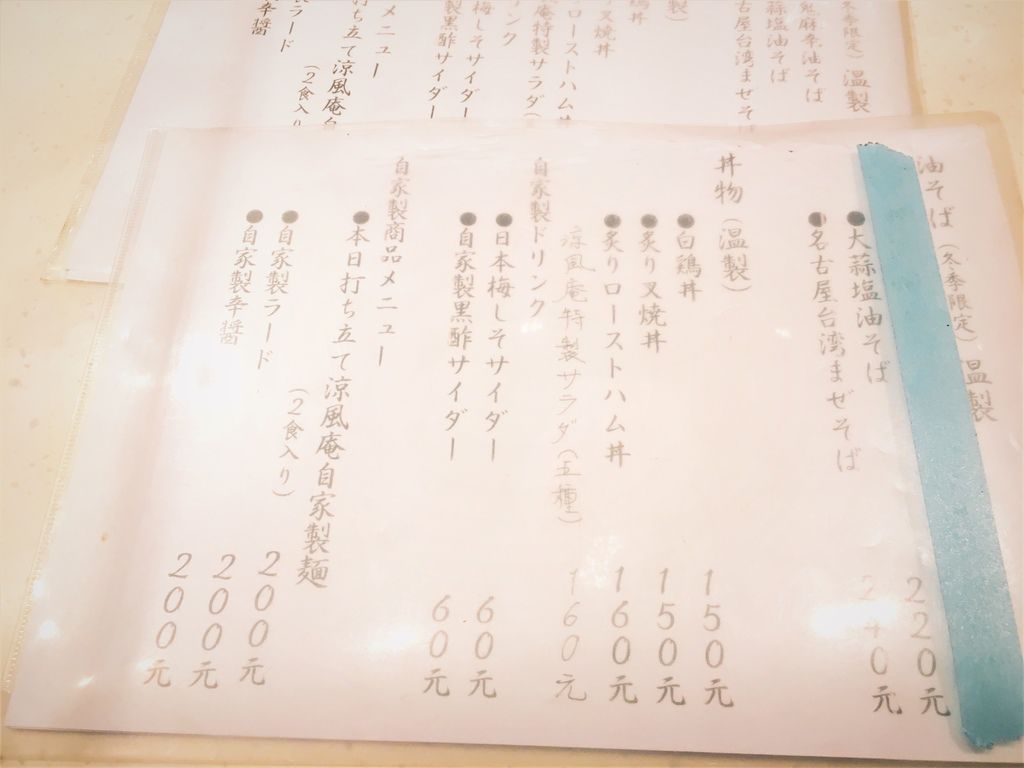 油そば（冬季限定）温製
●大蒜塩油そば 220元
●名古屋台湾まぜそば 240元
丼物（温製）
●白鶏丼 150元
●炙り叉焼丼 150元
●炙りローストハム丼 160元
涼風庵特製サラダ（五種） 160元
自家製ドリンク
●日本梅しそサイダー 60元
●自家製黒酢サイダー 60元
自家製商品メニュー
●本日打ち立て涼風庵自家製麺
（2食入り） 200元
●自家製ラード 200元
●自家製辛醤 200元
冬季限定）温製
麻辛油そば
蒜塩油そば
古屋台湾まぜそば
製）
鶏丼
り叉焼丼
りローストハム丼
庵特製サラダ（
ドリンク
梅しそサイダー
製黒酢サイダー
メニュー
打ち立て涼風庵自
（2食入り
製ラード
辛醤